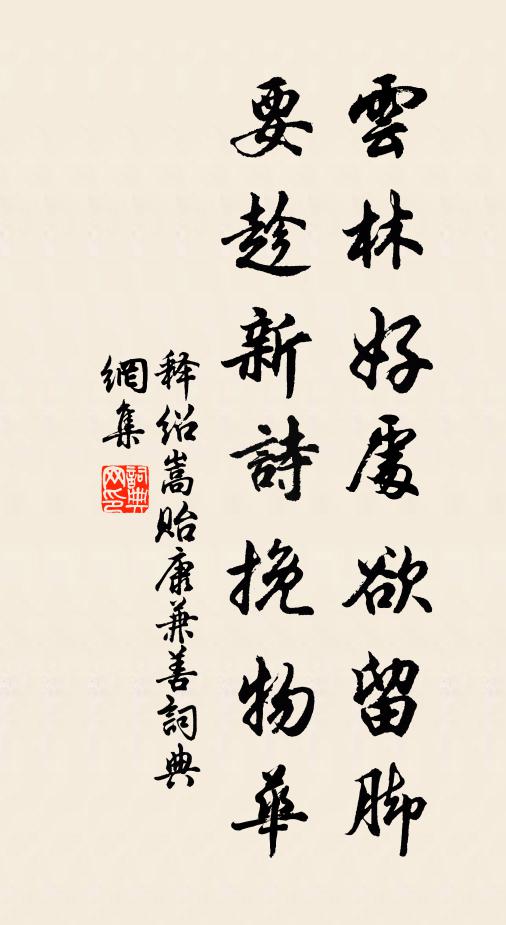 雲林好處欲留脚
要趁新詩挽物華
释绍嵩貽康兼善詞典
網集
詞典
网印